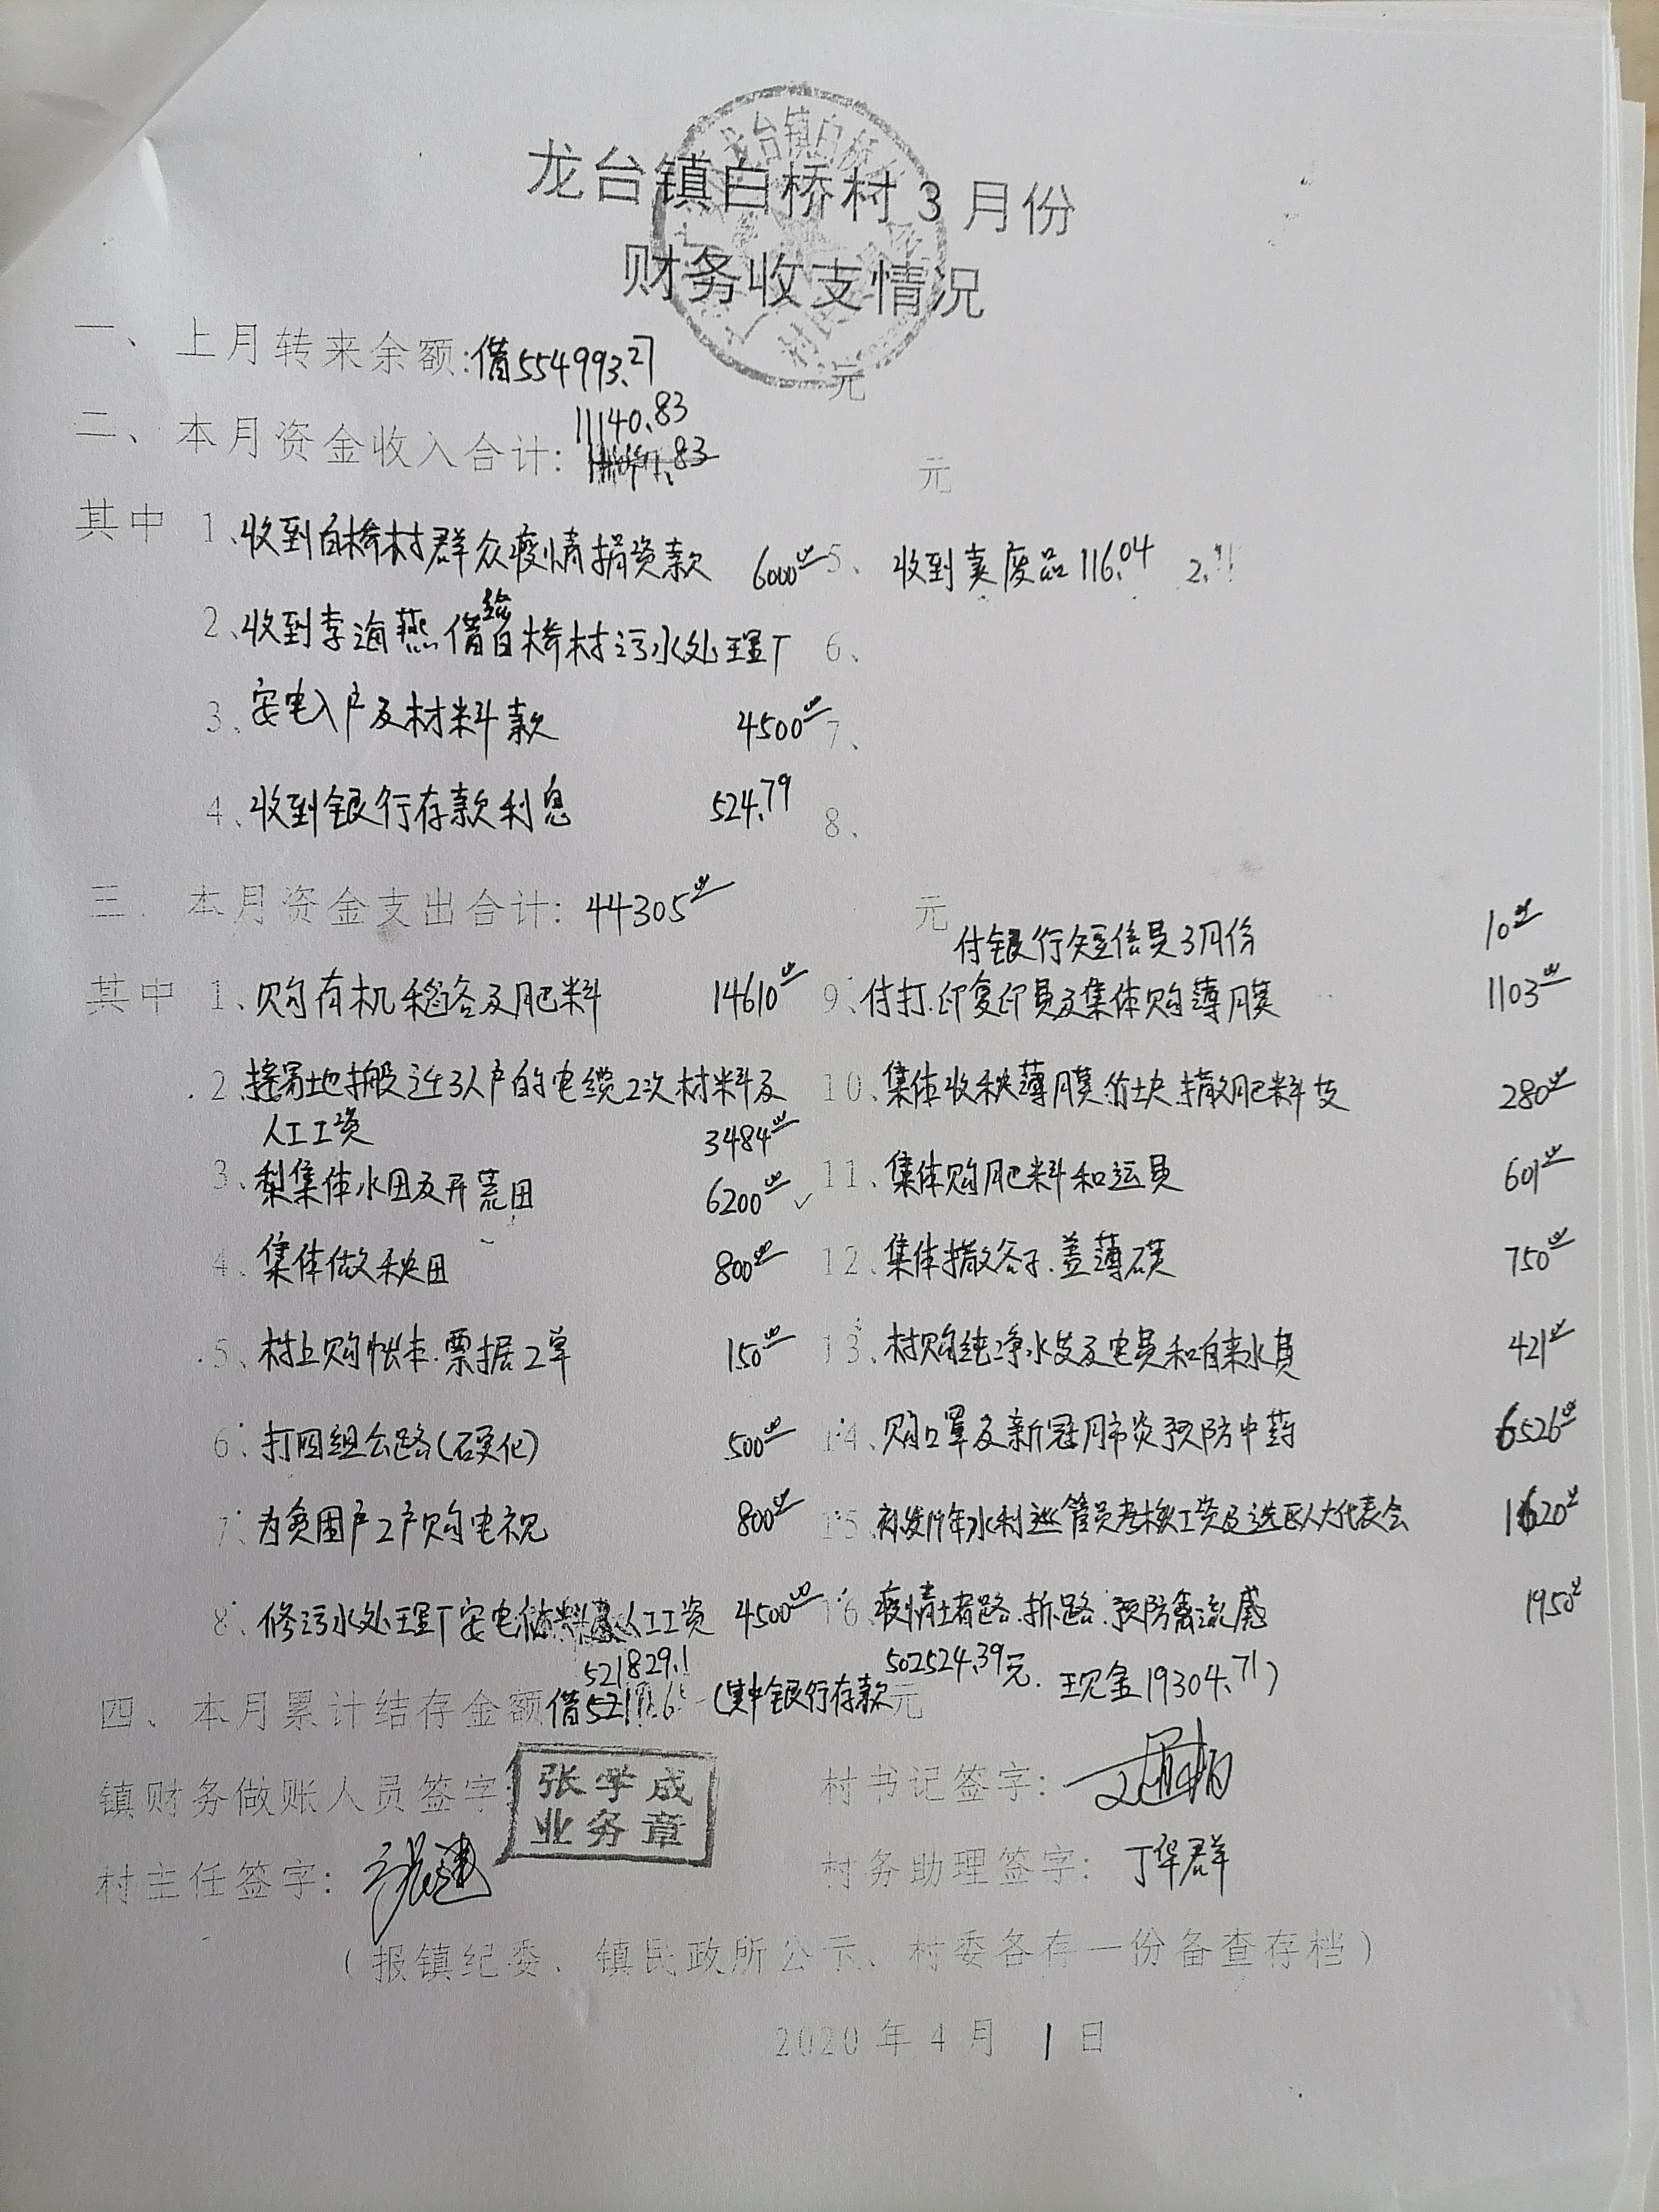 龙台镇白桥村3月份
财务收支情况
一、上月转来余额:借554993.27元
二、本月资金收入合计:11140.83元
其中 1、收到白桥村群众疫情捐资款 6000.00 5、收到卖废品116.04
2、收到李海燕借给白桥村污水处理厂 6、
3、安电入户及材料款 4500.00 7、
4、收到银行存款利息 524.79 8、
三、本月资金支出合计:44305.00元
付银行短信费3月份 10.00
其中 1、购有机稻谷及肥料 14610.00 9、付打.印复印费及集体购薄膜 1103.00
2、移易地搬迁3人户的电缆2次材料及 10、集体收秧薄膜.竹块.撒肥料支 280.00
人工工资 3484.00
3、犁集体水田及开荒田 6200.00 ✓ 11、集体购肥料和运费 601.00
4、集体做秧田 800.00 12、集体撒谷子.盖薄膜 750.00
5、村上购帐本.票据2单 150.00 13、村购纯净水及电费和自来水费 421.00
6、打四组公路(硬化) 500.00 14、购口罩及新冠肺炎预防中药 6526.00
7、为贫困户2户购电视 800.00 15、补发19年水利巡管员考核工资及选区人大代表会 1620.00
8、修污水处理厂安电材料及人工工资 4500.00 16、疫情堵路.拆路.预防禽流感 1950.00
四、本月累计结存金额借521829.1(其中银行存款502524.39元.现金19304.71)元
镇财务做账人员签字: 张学成 村书记签字:
业务章
村主任签字: 村务助理签字: 丁华群
(报镇纪委、镇民政所公示、村委各存一份备查存档)
2020年4月1日